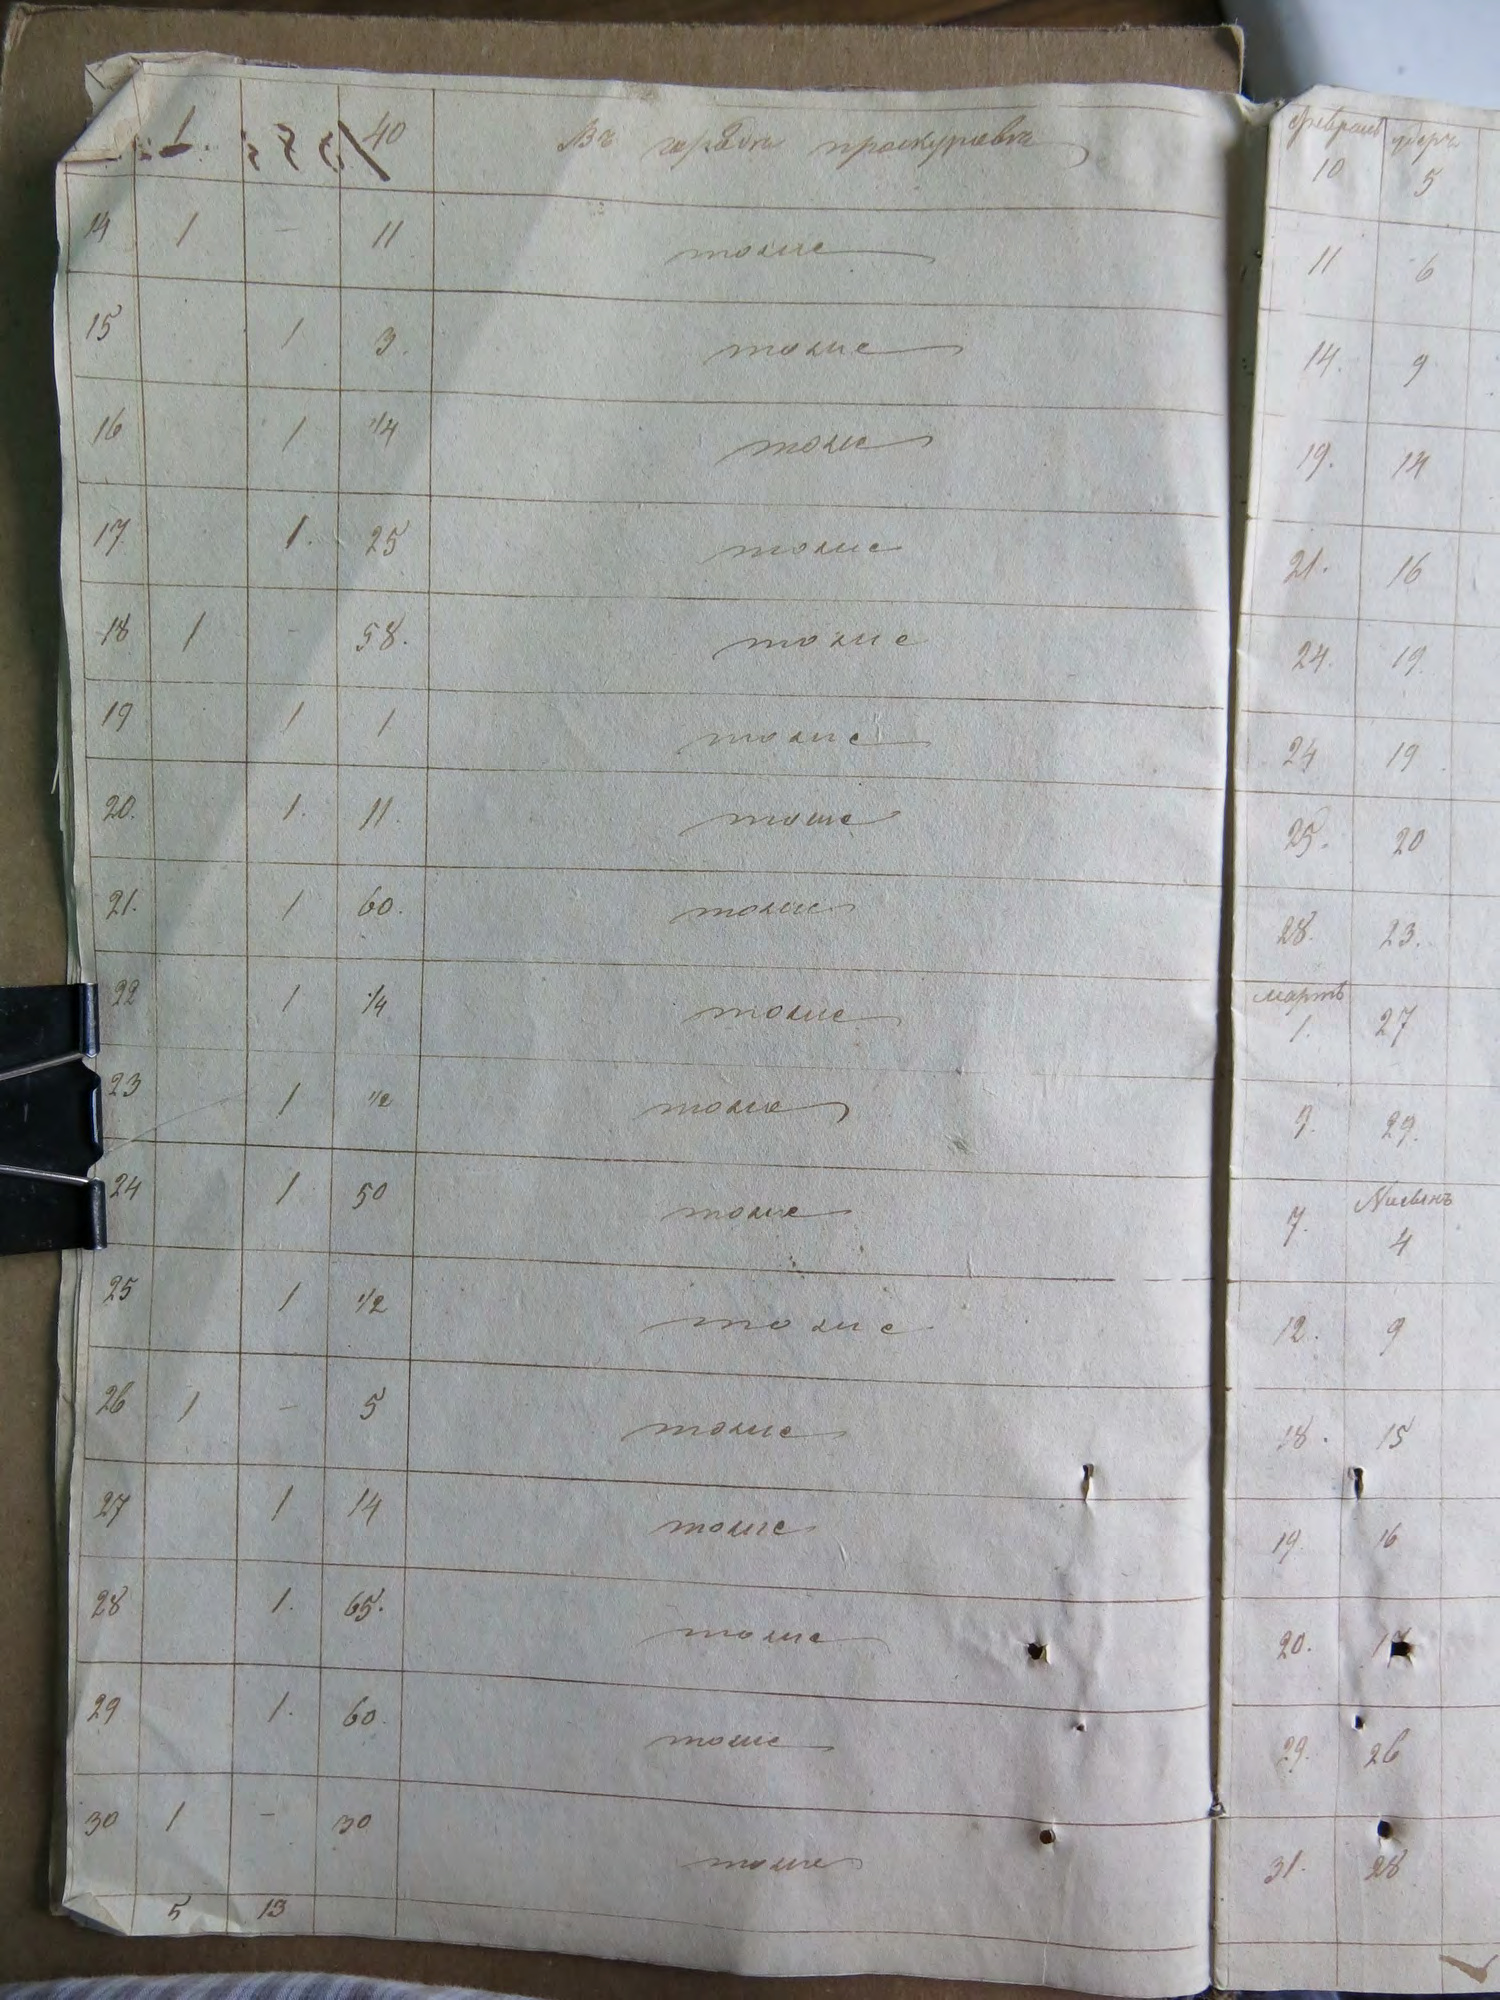 40 Въ городѣ проскуровѣ февраль 10 адаръ 5
14 1 - 11 тоже 11 6
15 1 3. тоже 14. 9
16 1 1/4 тоже 19. 14
17 1. 25 тоже 21. 16
18 1 - 58. тоже 24. 19
19 1 1 тоже 24 19
20. 1. 11. тоже 25. 20
21. 1 60. тоже 28. 23.
22 1 1/4 тоже мартъ 1. 27
23 1 1/2 тоже 3. 29.
24 1 50 тоже 7. Нисанъ 4
25 1 1/2 тоже 12. 9
26 1 - 5 тоже 18. 15
27 1 14 тоже 19. 16
28 1. 65. тоже 20. 17
29 1. 60. тоже 29. 26
30 1 - 30 тоже 31. 28
5 13